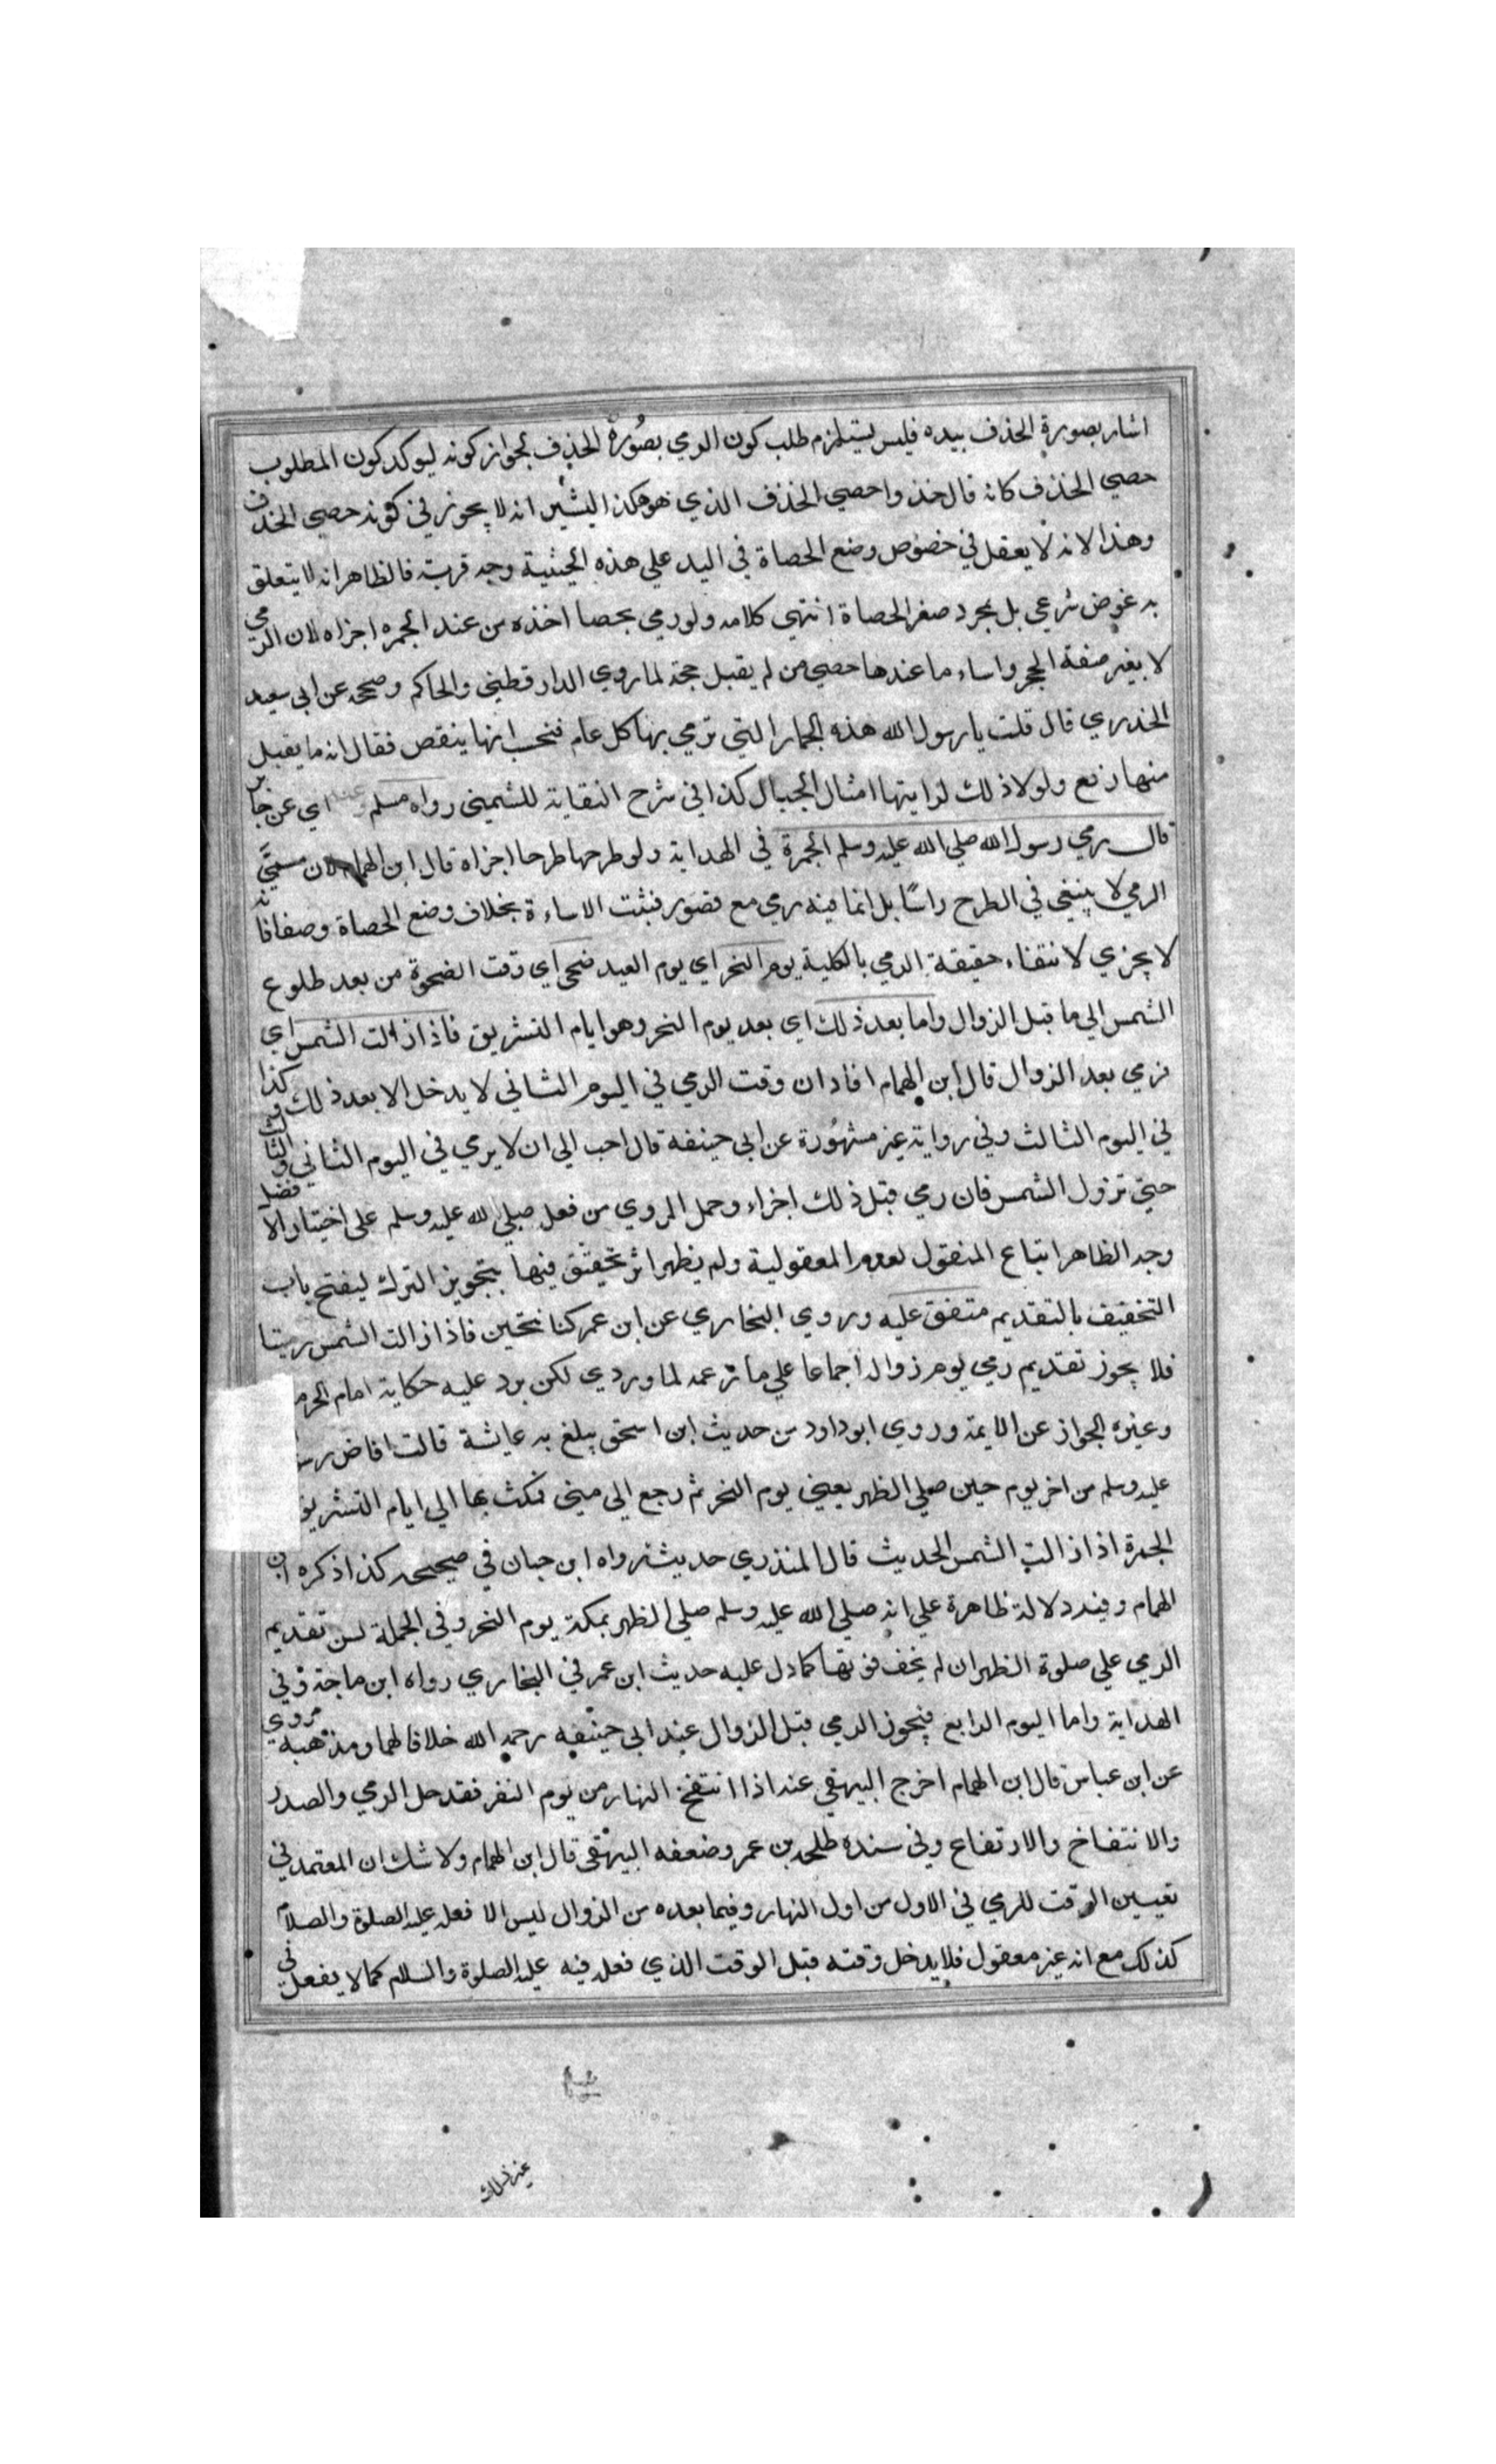 اشار بصورة الخذف بيده فليس يستلزم طلب كون الرمي بصورة الخذف لجواز كونه ليوكد كون المطلوب
حصي الخذف كانه قال خذوا حصي الخذف الذي هو هكذا ليشير انه لا يجوز في كونه حصي الخذف
وهذا لانه لا يعقل في خصوص وضع الحصاة في اليد علي هذه الحيثية وجه قربة فالظاهر انه لا يتعلق
به غرض شرعي بل بمجرد صغر الحصاة انتهي كلامه ولو رمي بحصا اخذه من عند الجمره اجزاه لان الرمي
لا يغير صفة الحجر واساء ما عندها حصي من لم يقبل حجة لما روي الدارقطني والحاكم وصححه عن ابي سعيد
الخدري قال قلت يا رسول الله هذه الجمار التي ترمي بها كل عام فنحسب انها ينقص فقال انه ما يقبل
منها رفع ولولا ذلك لرايتها امثال الجبال كذا في شرح النقاية للشمني رواه مسلم وعنه اي عن جابر
قال رمي رسول الله صلي الله عليه وسلم الجمرة في الهداية ولو طرحها طرحا اجزاه قال ابن الهمام لان مسمي
الرمي لا ينتفي في الطرح راسا بل انما فيه رمي مع قصور فثبت الاساءة بخلاف وضع الحصاة وضعا فانه
لا يجزي لانتفاء حقيقة الرمي بالكلية يوم النحر اي يوم العيد ضحي اي وقت الضحوة من بعد طلوع
الشمس الي ما قبل الزوال واما بعد ذلك اي بعد يوم النحر وهو ايام التشريق فاذا زالت الشمس اي
فرمي بعد الزوال قال ابن الهمام افاد ان وقت الرمي في اليوم الثاني لا يدخل الا بعد ذلك وكذا
في اليوم الثالث وفي رواية غير مشهورة عن ابي حنيفه قال احب الي ان لا يرمي في اليوم الثاني والثالث
حتي تزول الشمس فان رمي قبل ذلك اجزاء وحمل المروي من فعل صلي الله عليه وسلم علي اختيار الافضل
وجه الظاهر اتباع المنقول لعدم المعقولية ولم يظهر اثر تخفيف فيها بتجويز الترك ليفتح باب
التخفيف بالتقديم متفق عليه وروي البخاري عن ابن عمر كنا نتحين فاذا زالت الشمس رمينا
فلا يجوز تقديم رمي يوم زواله اجماعا علي ما زعمه لماوردي لكن يرد عليه حكاية امام الحرم
وغيره الجواز عن الايمة وروي ابو داود من حديث ابن اسحق يبلغ به عايشة قالت افاض رس
عليه وسلم من اخر يوم حين صلي الظهر يعني يوم النحر ثم رجع الي مني فمكث بها الي ايام التشريق
الجمرة اذا زالت الشمس الحديث قال المنذري حديث رواه ابن حبان في صحيحه كذا ذكره ابن
الهمام وفيه دلالة ظاهرة علي انه صلي الله عليه وسلم صلي الظهر بمكة يوم النحر وفي الجملة لسن تقديم
الرمي علي صلوة الظهر ان لم يخف فوتها كما دل عليه حديث ابن عمر في البخاري رواه ابن ماجة وفي
الهداية واما اليوم الرابع فيجوز الرمي قبل الزوال عند ابي حنيفه رحمه الله خلافا لهما ومذهبه مروي
عن ابن عباس قال ابن الهمام اخرج البيهقي عنه اذا انتفخ النهار من يوم النفر فقد حل الرمي والصدر
والانتفاخ والارتفاع وفي سنده طلحه بن عمر وضعفه البيهقي قال ابن الهمام ولا شك ان المعتمد في
تعيين الوقت للرمي في الاول من اول النهار وفيما بعده من الزوال ليس الا فعله عليه الصلوة والسلام
كذلك مع انه غير معقول فلا يدخل وقته قبل الوقت الذي فعله فيه عليه الصلوة والسلام كما لا يفعل في
غير ذلك